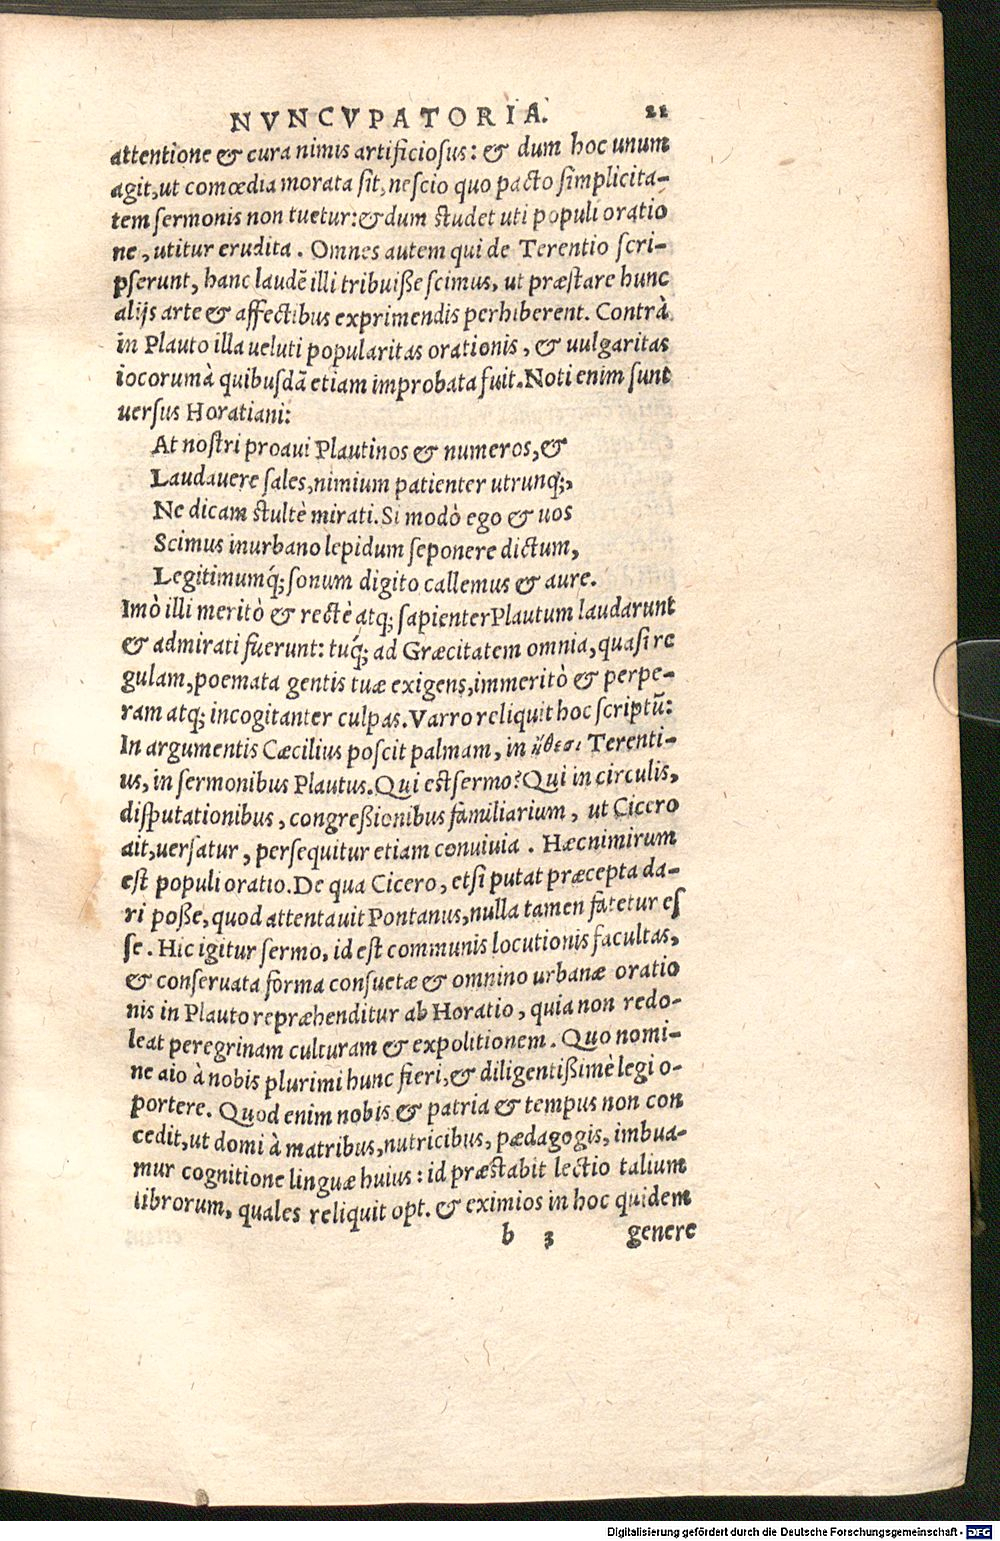 NVNCVPATORIA. 21
attentione & cura nimis artificiosus: & dum hoc unum
agit, ut comœdia morata sit, nescio quo pacto simplicita-
tem sermonis non tuetur: & dum studet uti populi oratio
ne, utitur erudita. Omnes autem qui de Terentio scri-
pserunt, hanc laudē illi tribuiße scimus, ut præstare hunc
alijs arte & affectibus exprimendis perhiberent. Contrà
in Plauto illa ueluti popularitas orationis, & uulgaritas
iocorum à quibusdā etiam improbata fuit. Noti enim sunt
uersus Horatiani:
At nostri proaui Plautinos & numeros, &
Laudauere sales, nimium patienter utrunq;,
Ne dicam stultè mirati. Si modò ego & uos
Scimus inurbano lepidum seponere dictum,
Legitimumq́; sonum digito callemus & aure.
Imò illi meritò & rectè atq; sapienter Plautum laudarunt
& admirati fuerunt: tuq́; ad Græcitatem omnia, quasi re
gulam, poemata gentis tuæ exigens, immeritò & perpe-
ram atq; incogitanter culpas. Varro reliquit hoc scriptū:
In argumentis Cæcilius poscit palmam, in ἤθεσι Terenti-
us, in sermonibus Plautus. Qui est sermo? Qui in circulis,
disputationibus, congreßionibus familiarium, ut Cicero
ait, uersatur, persequitur etiam conuiuia. Hæc nimirum
est populi oratio. De qua Cicero, etsi putat præcepta da-
ri poße, quod attentauit Pontanus, nulla tamen fatetur es
se. Hic igitur sermo, id est communis locutionis facultas,
& conseruata forma consuetæ & omnino urbanæ oratio
nis in Plauto repræhenditur ab Horatio, quia non redo-
leat peregrinam culturam & expolitionem. Quo nomi-
ne aio à nobis plurimi hunc fieri, & diligentißimè legi o-
portere. Quod enim nobis & patria & tempus non con
cedit, ut domi à matribus, nutricibus, pædagogis, imbua-
mur cognitione linguæ huius: id præstabit lectio talium
librorum, quales reliquit opt. & eximios in hoc quidem
b 3 genere
Digitalisierung gefördert durch die Deutsche Forschungsgemeinschaft - DFG